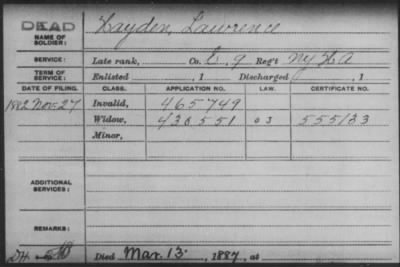 DEAD
NAME OF SOLDIER: Hayden, Lawrence
SERVICE: Late rank, Co. E, 9 Reg't NY HA
TERM OF SERVICE: Enlisted , 1 Discharged , 1
DATE OF FILING. CLASS. APPLICATION NO. LAW. CERTIFICATE NO.
1882 Nov. 27 Invalid, 465749
Widow, 430551 03 555133
Minor,
ADDITIONAL SERVICES:
REMARKS:
Died Mar. 13, 1887, at